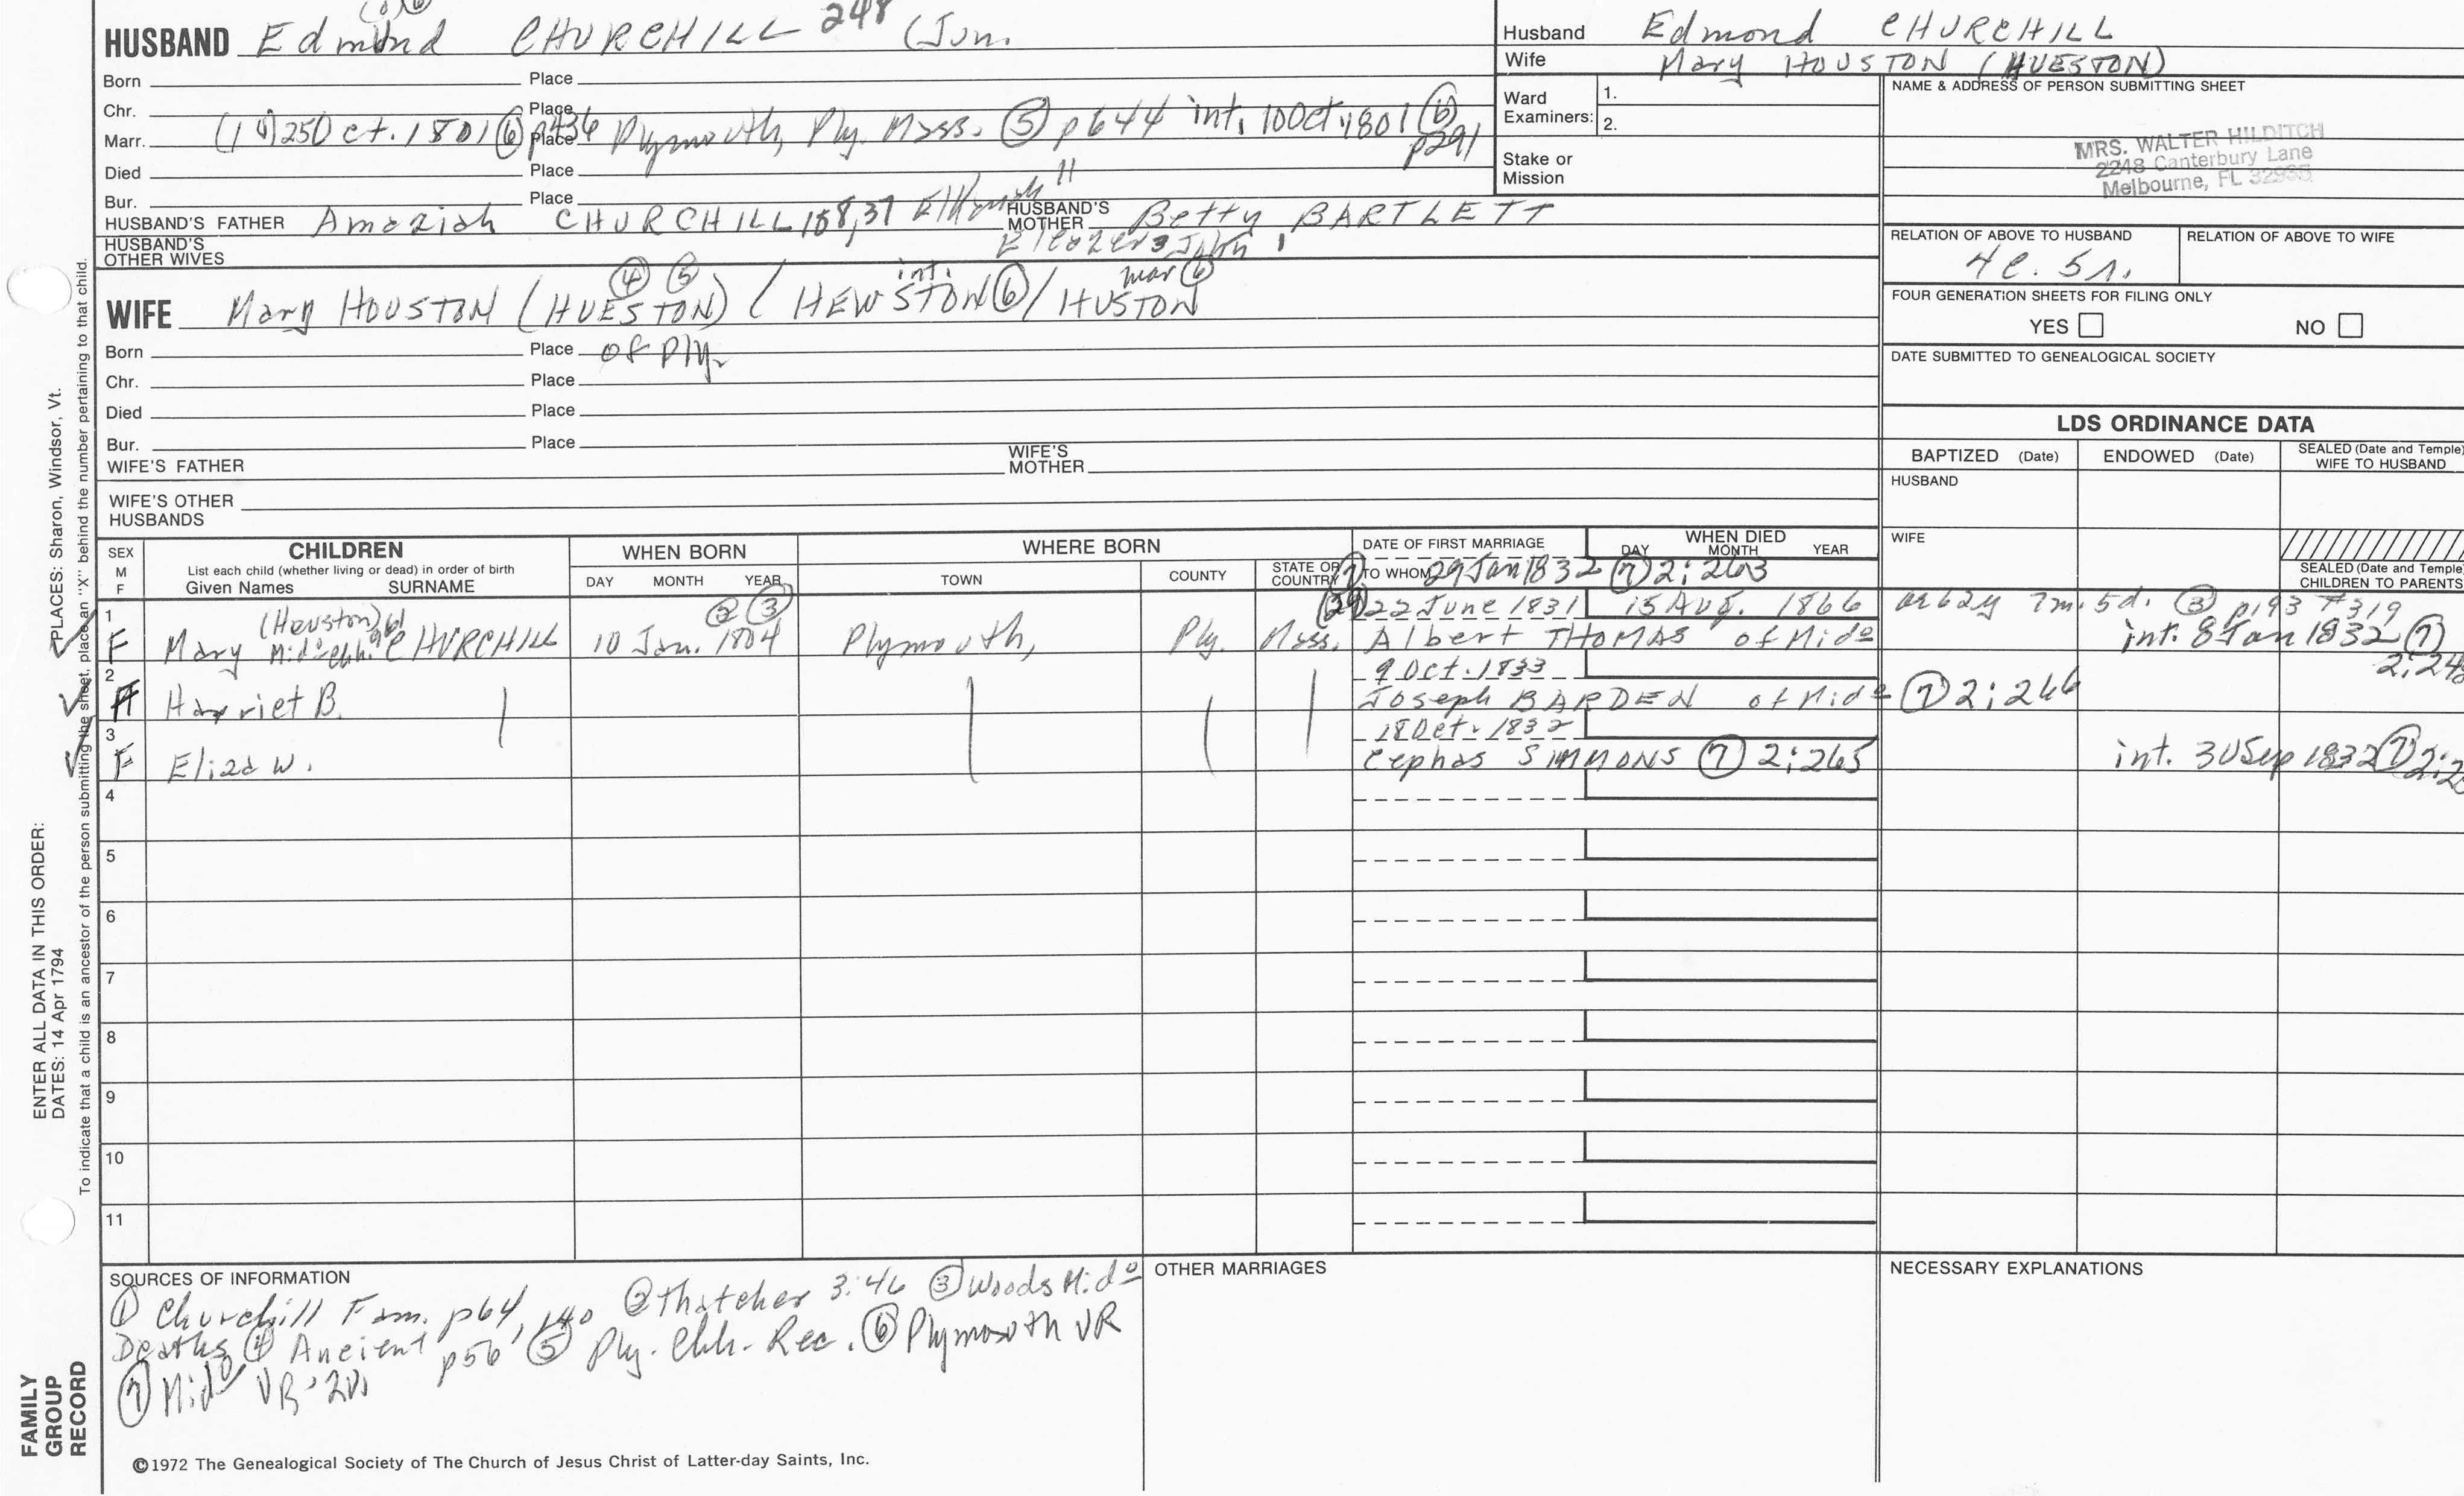 HUSBAND Edmund CHURCHILL 248 (Jun.
Born Place
Chr. Place
Marr. 25 Oct. 1801 ⑥ p436 Place Plymouth, Ply. Mass. ⑤ p644 int. 10 Oct 1801 ⑥ p291
Died Place
Bur. Place
HUSBAND'S FATHER Amaziah CHURCHILL 158, 37 Elkanah HUSBAND'S MOTHER Betty BARTLETT
Eleazer 3 John 1
HUSBAND'S OTHER WIVES
④ ⑤ int. mar ⑥
WIFE Mary HOUSTON (HUESTON) / HEWSTON ⑥ / HUSTON
Born Place of Ply.
Chr. Place
Died Place
Bur. Place
WIFE'S FATHER WIFE'S MOTHER
WIFE'S OTHER HUSBANDS
Husband Edmond CHURCHILL
Wife Mary HOUSTON (HUESTON)
Ward Examiners: 1.
2.
Stake or Mission
NAME & ADDRESS OF PERSON SUBMITTING SHEET
MRS. WALTER HILDITCH
2248 Canterbury Lane
Melbourne, FL 32935
RELATION OF ABOVE TO HUSBAND RELATION OF ABOVE TO WIFE
4c. 5r.
FOUR GENERATION SHEETS FOR FILING ONLY
YES NO
DATE SUBMITTED TO GENEALOGICAL SOCIETY
LDS ORDINANCE DATA
BAPTIZED (Date) ENDOWED (Date) SEALED (Date and Temple) WIFE TO HUSBAND
HUSBAND
WIFE
SEALED (Date and Temple) CHILDREN TO PARENTS
SEX M F
CHILDREN
List each child (whether living or dead) in order of birth
Given Names SURNAME
WHEN BORN
DAY MONTH YEAR
WHERE BORN
TOWN COUNTY STATE OR COUNTRY
DATE OF FIRST MARRIAGE
TO WHOM
WHEN DIED
DAY MONTH YEAR
⑦ 29 Jan 1832 ⑦ 2:263
② ③
1 (Heuston) 22 June 1831 15 Aug. 1866 ae 62y 7m. 5d. ③ p193 #319
F Mary CHURCHILL 10 Jan. 1804 Plymouth, Ply. Mass. Albert THOMAS of Mido int. 8 Jan 1832 ⑦
2 9 Oct. 1833
F Harriet B. Joseph BARDEN of Mido ⑦ 2:266
3 18 Oct. 1832
F Eliza W. Cephas SIMMONS ⑦ 2:265 int. 30 Sep 1832 ⑦
4
5
6
7
8
9
10
11
SOURCES OF INFORMATION
① Churchill Fam. p64, 140 ② Thatcher 3:46 ③ Woods Mido
Deaths ④ Ancient p56, ⑤ Ply. Chh. Rec. ⑥ Plymouth VR
⑦ Mido VR 2v.
OTHER MARRIAGES
NECESSARY EXPLANATIONS
©1972 The Genealogical Society of The Church of Jesus Christ of Latter-day Saints, Inc.
FAMILY GROUP RECORD
ENTER ALL DATA IN THIS ORDER:
DATES: 14 Apr 1794
PLACES: Sharon, Windsor, Vt.
To indicate that a child is an ancestor of the person submitting the sheet, place an "X" behind the number pertaining to that child.